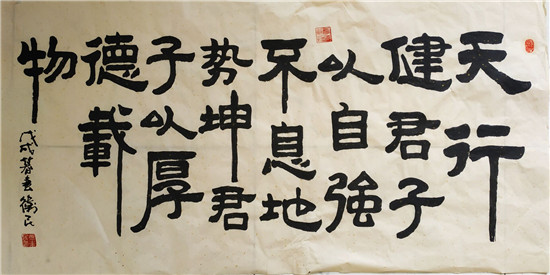 天行
健君子
以自強
不息地
势坤君
子以厚
德載
物
戊戌暮春衛民